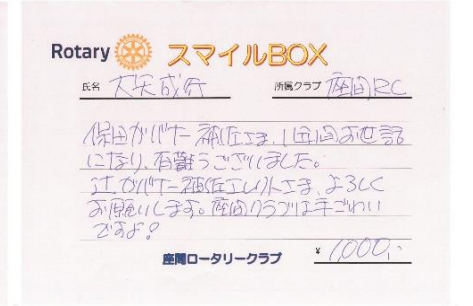 Rotary スマイルBOX
氏名 大矢成行 所属クラブ 座間RC
保田ガバナー補佐さま、1年間お世話
になり、有難うございました。
辻ガバナー補佐エレクトさま、よろしく
お願いします。座間クラブは手ごわい
ですよ!
座間ロータリークラブ ¥ 1,000,-